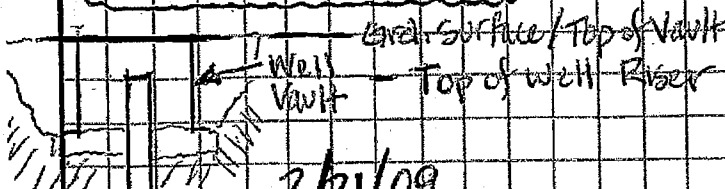 Grd. Surface / Top of Vault
Well Vault
Top of Well Riser